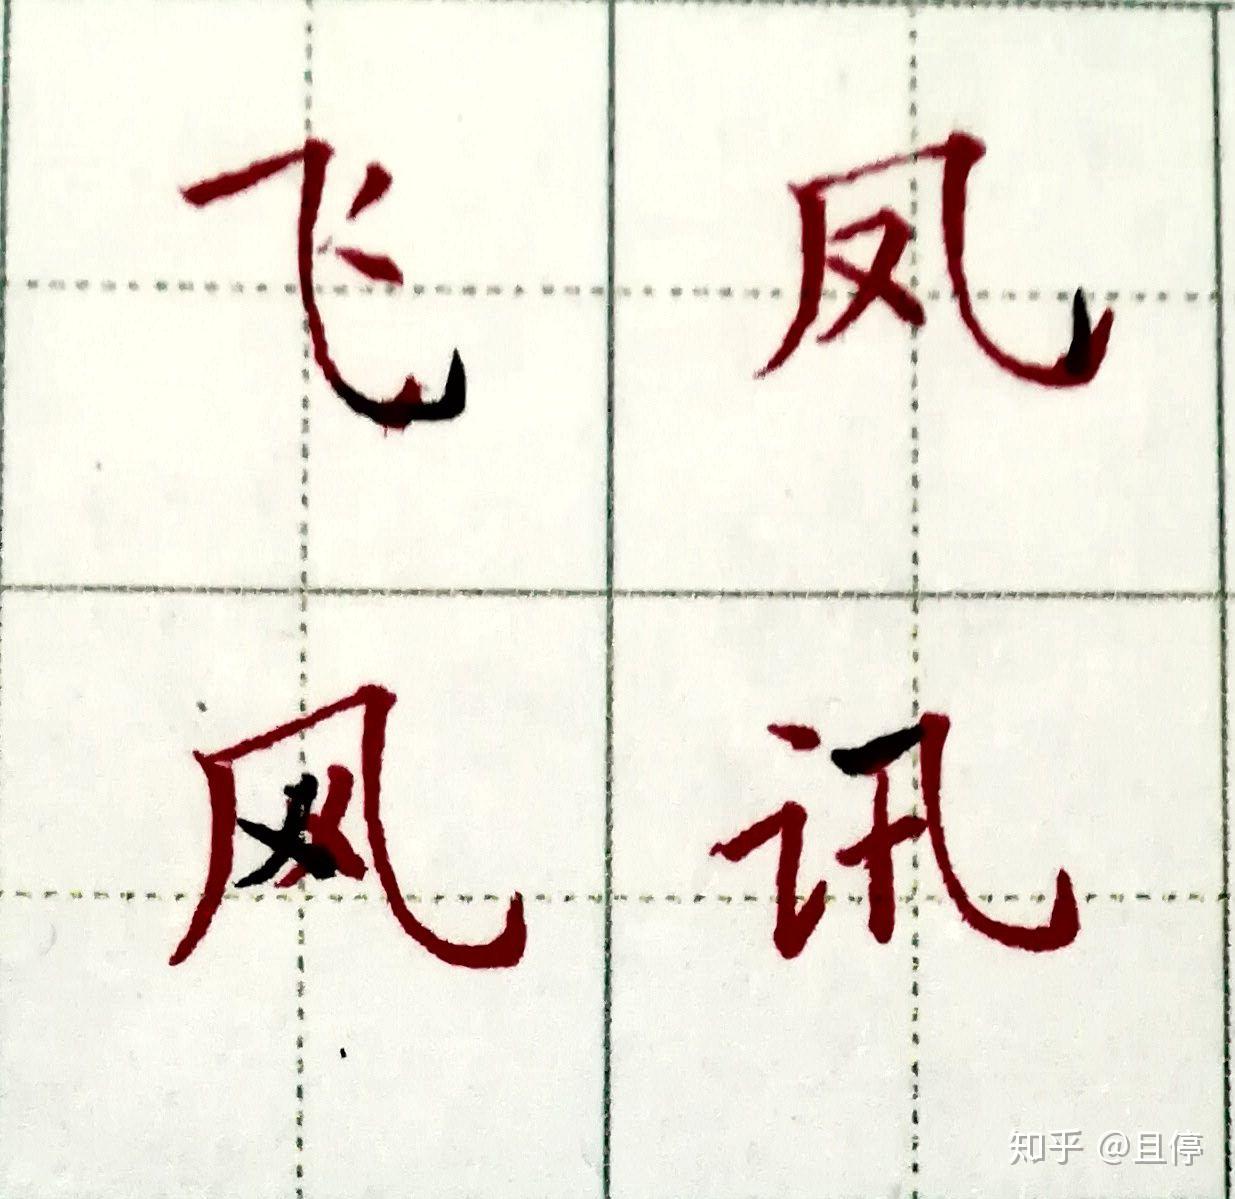 飞凤
风讯
知乎 @且停